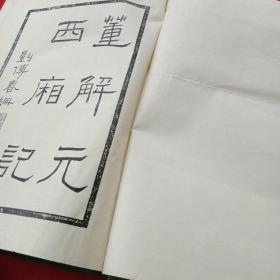 董解元
西廂記
劉傳春